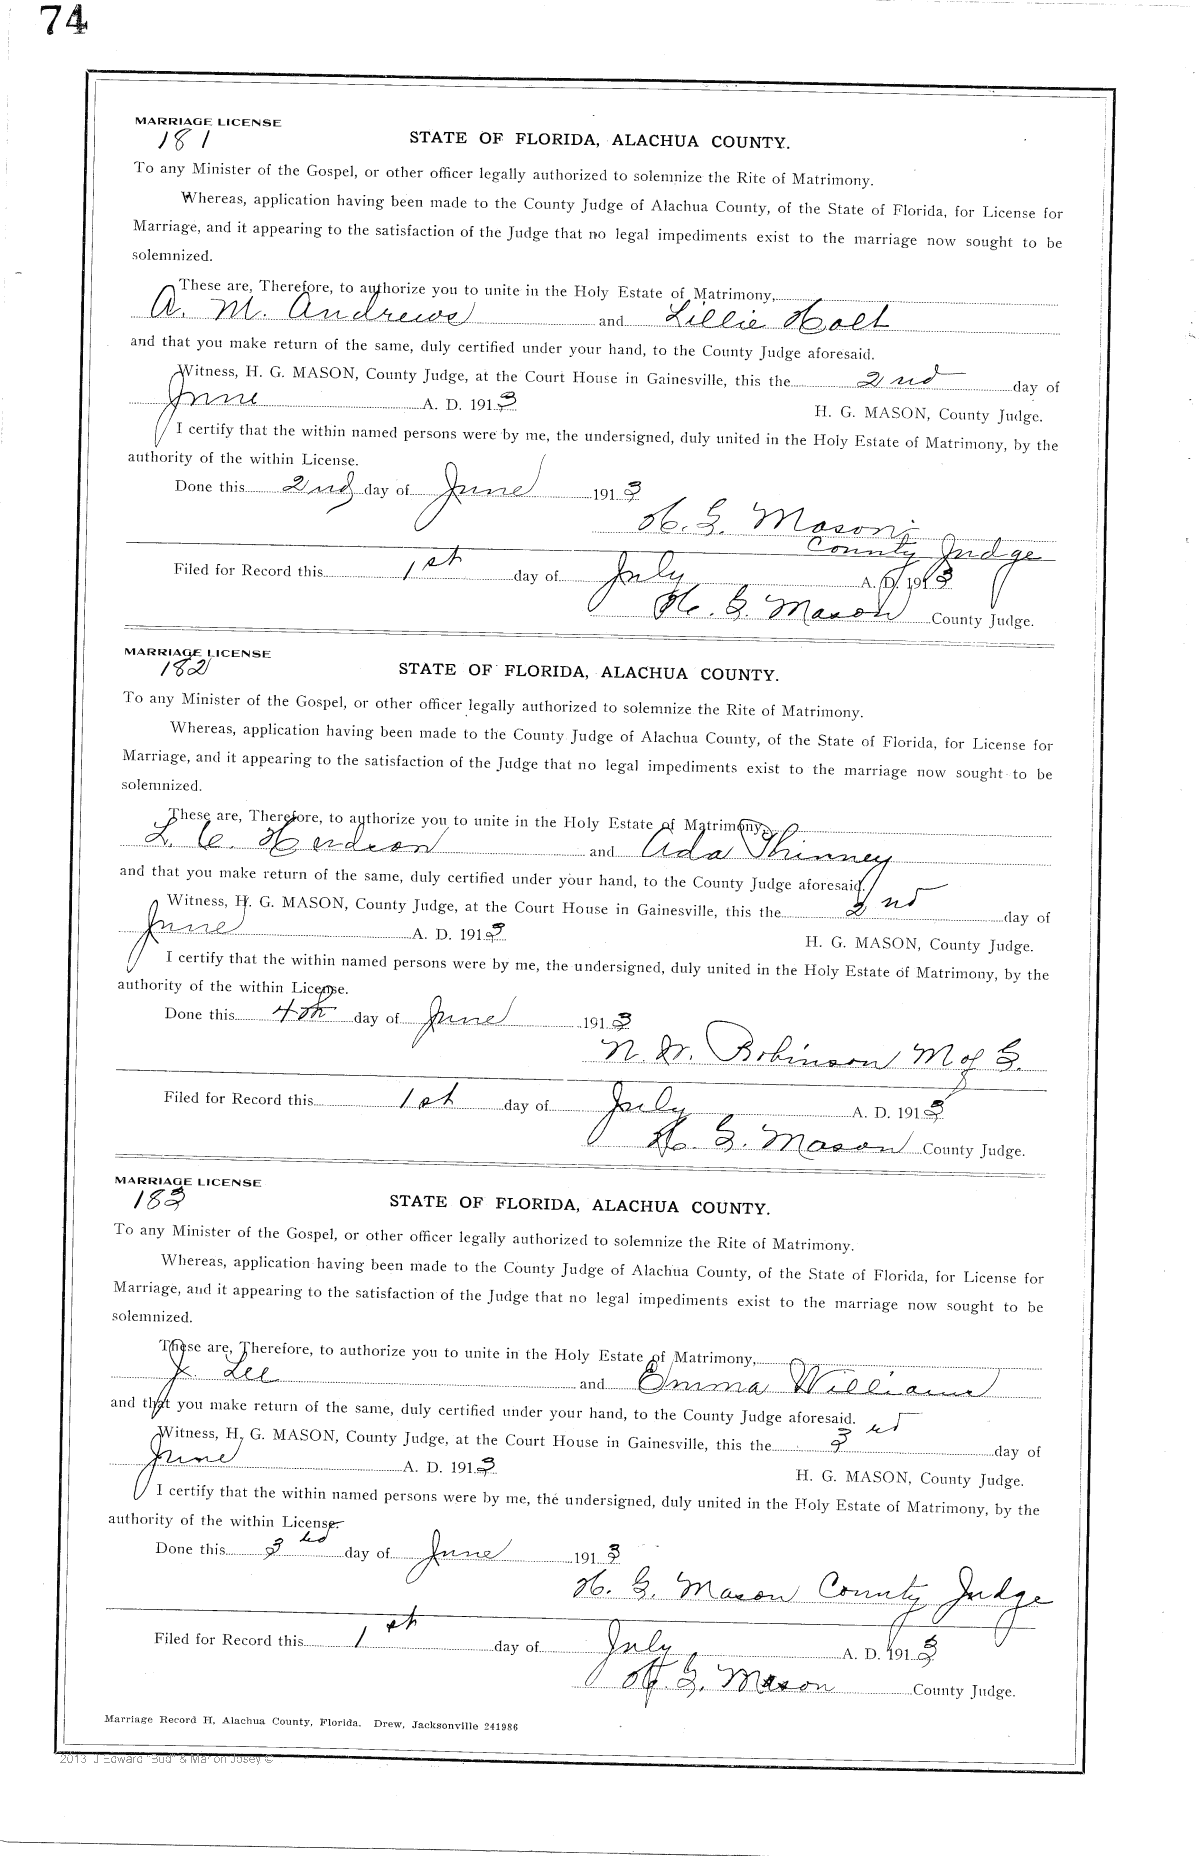 74
MARRIAGE LICENSE
181
STATE OF FLORIDA, ALACHUA COUNTY.
To any Minister of the Gospel, or other officer legally authorized to solemnize the Rite of Matrimony.
Whereas, application having been made to the County Judge of Alachua County, of the State of Florida, for License for
Marriage, and it appearing to the satisfaction of the Judge that no legal impediments exist to the marriage now sought to be
solemnized.
These are, Therefore, to authorize you to unite in the Holy Estate of Matrimony,
A. M. Andrews and Lillie Holt
and that you make return of the same, duly certified under your hand, to the County Judge aforesaid.
Witness, H. G. MASON, County Judge, at the Court House in Gainesville, this the 2nd day of
June A. D. 1913 H. G. MASON, County Judge.
I certify that the within named persons were by me, the undersigned, duly united in the Holy Estate of Matrimony, by the
authority of the within License.
Done this 2nd day of June 1913
H. G. Mason
County Judge
Filed for Record this 1st day of July A. D. 1913
H. G. Mason County Judge.
MARRIAGE LICENSE
182
STATE OF FLORIDA, ALACHUA COUNTY.
To any Minister of the Gospel, or other officer legally authorized to solemnize the Rite of Matrimony.
Whereas, application having been made to the County Judge of Alachua County, of the State of Florida, for License for
Marriage, and it appearing to the satisfaction of the Judge that no legal impediments exist to the marriage now sought to be
solemnized.
These are, Therefore, to authorize you to unite in the Holy Estate of Matrimony,
L. C. and Ada Phinney
and that you make return of the same, duly certified under your hand, to the County Judge aforesaid.
Witness, H. G. MASON, County Judge, at the Court House in Gainesville, this the 2nd day of
June A. D. 1913 H. G. MASON, County Judge.
I certify that the within named persons were by me, the undersigned, duly united in the Holy Estate of Matrimony, by the
authority of the within License.
Done this 4th day of June 1913
N. W. Robinson M of G.
Filed for Record this 1st day of July A. D. 1913
H. G. Mason County Judge.
MARRIAGE LICENSE
183
STATE OF FLORIDA, ALACHUA COUNTY.
To any Minister of the Gospel, or other officer legally authorized to solemnize the Rite of Matrimony.
Whereas, application having been made to the County Judge of Alachua County, of the State of Florida, for License for
Marriage, and it appearing to the satisfaction of the Judge that no legal impediments exist to the marriage now sought to be
solemnized.
These are, Therefore, to authorize you to unite in the Holy Estate of Matrimony,
J. Lee and Emma Williams
and that you make return of the same, duly certified under your hand, to the County Judge aforesaid.
Witness, H. G. MASON, County Judge, at the Court House in Gainesville, this the 3rd day of
June A. D. 1913 H. G. MASON, County Judge.
I certify that the within named persons were by me, the undersigned, duly united in the Holy Estate of Matrimony, by the
authority of the within License.
Done this 3rd day of June 1913
H. G. Mason County Judge
Filed for Record this 1st day of July A. D. 1913
H. G. Mason County Judge.
Marriage Record H, Alachua County, Florida. Drew, Jacksonville 241986
2013 J Edward "Bud" & Marion Josey ©